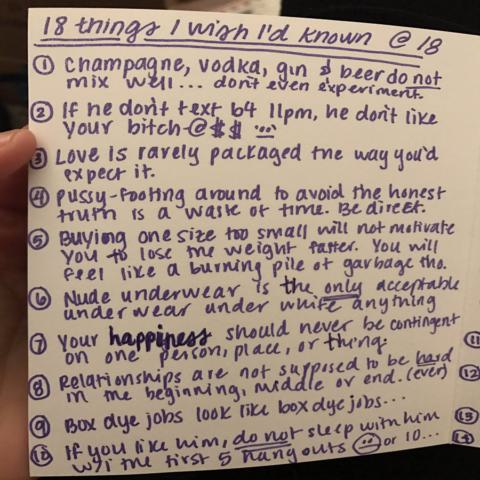 18 things I wish I'd known @ 18
① Champagne, vodka, gin & beer do not
mix well... don't even experiment.
② If he don't text b4 11pm, he don't like
your bitch-@$$
③ Love is rarely packaged the way you'd
expect it.
④ Pussy-footing around to avoid the honest
truth is a waste of time. Be direct.
⑤ Buying one size too small will not motivate
you to lose the weight faster. You will
feel like a burning pile of garbage tho.
⑥ Nude underwear is the only acceptable
underwear under white anything
⑦ Your happiness should never be contingent
on one person, place, or thing.
⑧ Relationships are not supposed to be hard
in the beginning, middle or end. (ever)
⑨ Box dye jobs look like box dye jobs...
⑩ If you like him, do not sleep with him
w/i the first 5 hang outs ☹ or 10...
⑪
⑫
⑬
⑭